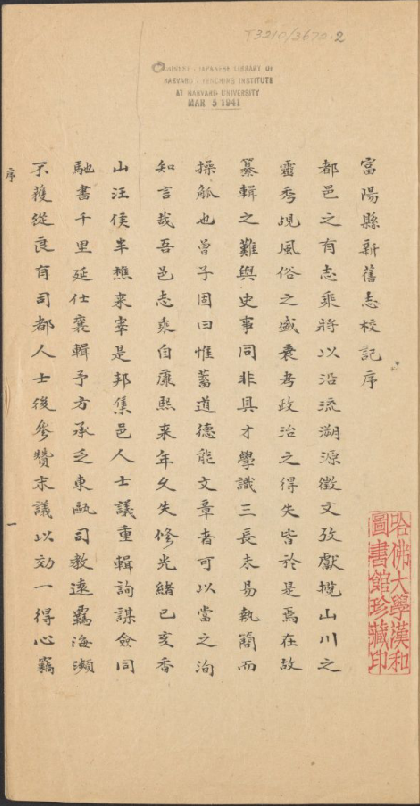 T3210/3670.2
CHINESE-JAPANESE LIBRARY OF
HARVARD-YENCHING INSTITUTE
AT HARVARD UNIVERSITY
MAR 5 1941
富陽縣新舊志校記序
都邑之有志乘將以沿流溯源徵文攷獻攬山川之
靈秀覘風俗之盛衰考政治之得失皆於是焉在故
纂輯之難與史事同非具才學識三長未易執簡而
操觚也曾子固曰惟蓄道德能文章者可以當之洵
知言哉吾邑志乘自康熙來年久失修光緒己亥香
山汪侯半樵來宰是邦集邑人士議重輯詢謀僉同
馳書千里延仕襄輯予方承乏東甌司教遠羈海瀕
不獲從良有司都人士後參贊末議以効一得心竊
序
一
哈佛大學漢和
圖書館珍藏印